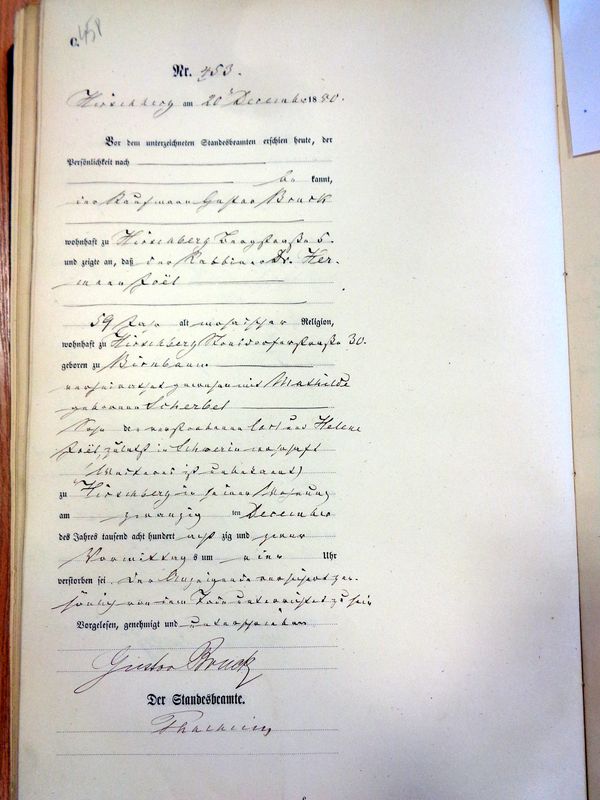 C.
458
Nr. 453.
Hirschberg am 20 December 1880.
Vor dem unterzeichneten Standesbeamten erschien heute, der
Persönlichkeit nach
be kannt,
der Kaufmann Gustav Bruck
wohnhaft zu Hirschberg
und zeigte an, daß der Rabbiner Dr. Her-
mann Joël
59 Jahr alt mosaischer Religion,
wohnhaft zu Hirschberg 30.
geboren zu Birnbaum
verheirathet gewesen mit Mathilde
geborenen Scherbel
Sohn der verstorbenen und Helene
Joël, zuletzt in Schwerin wohnhaft
ist unbekannt)
zu Hirschberg in seiner Wohnung
am zwanzig ten December
des Jahres tausend acht hundert acht zig und
Vormittag s um Uhr
verstorben sei. Der Anzeigende versichert per-
sönlich von dem Tode unterrichtet zu sein
Vorgelesen, genehmigt und unterschrieben
Gustav Bruck
Der Standesbeamte.